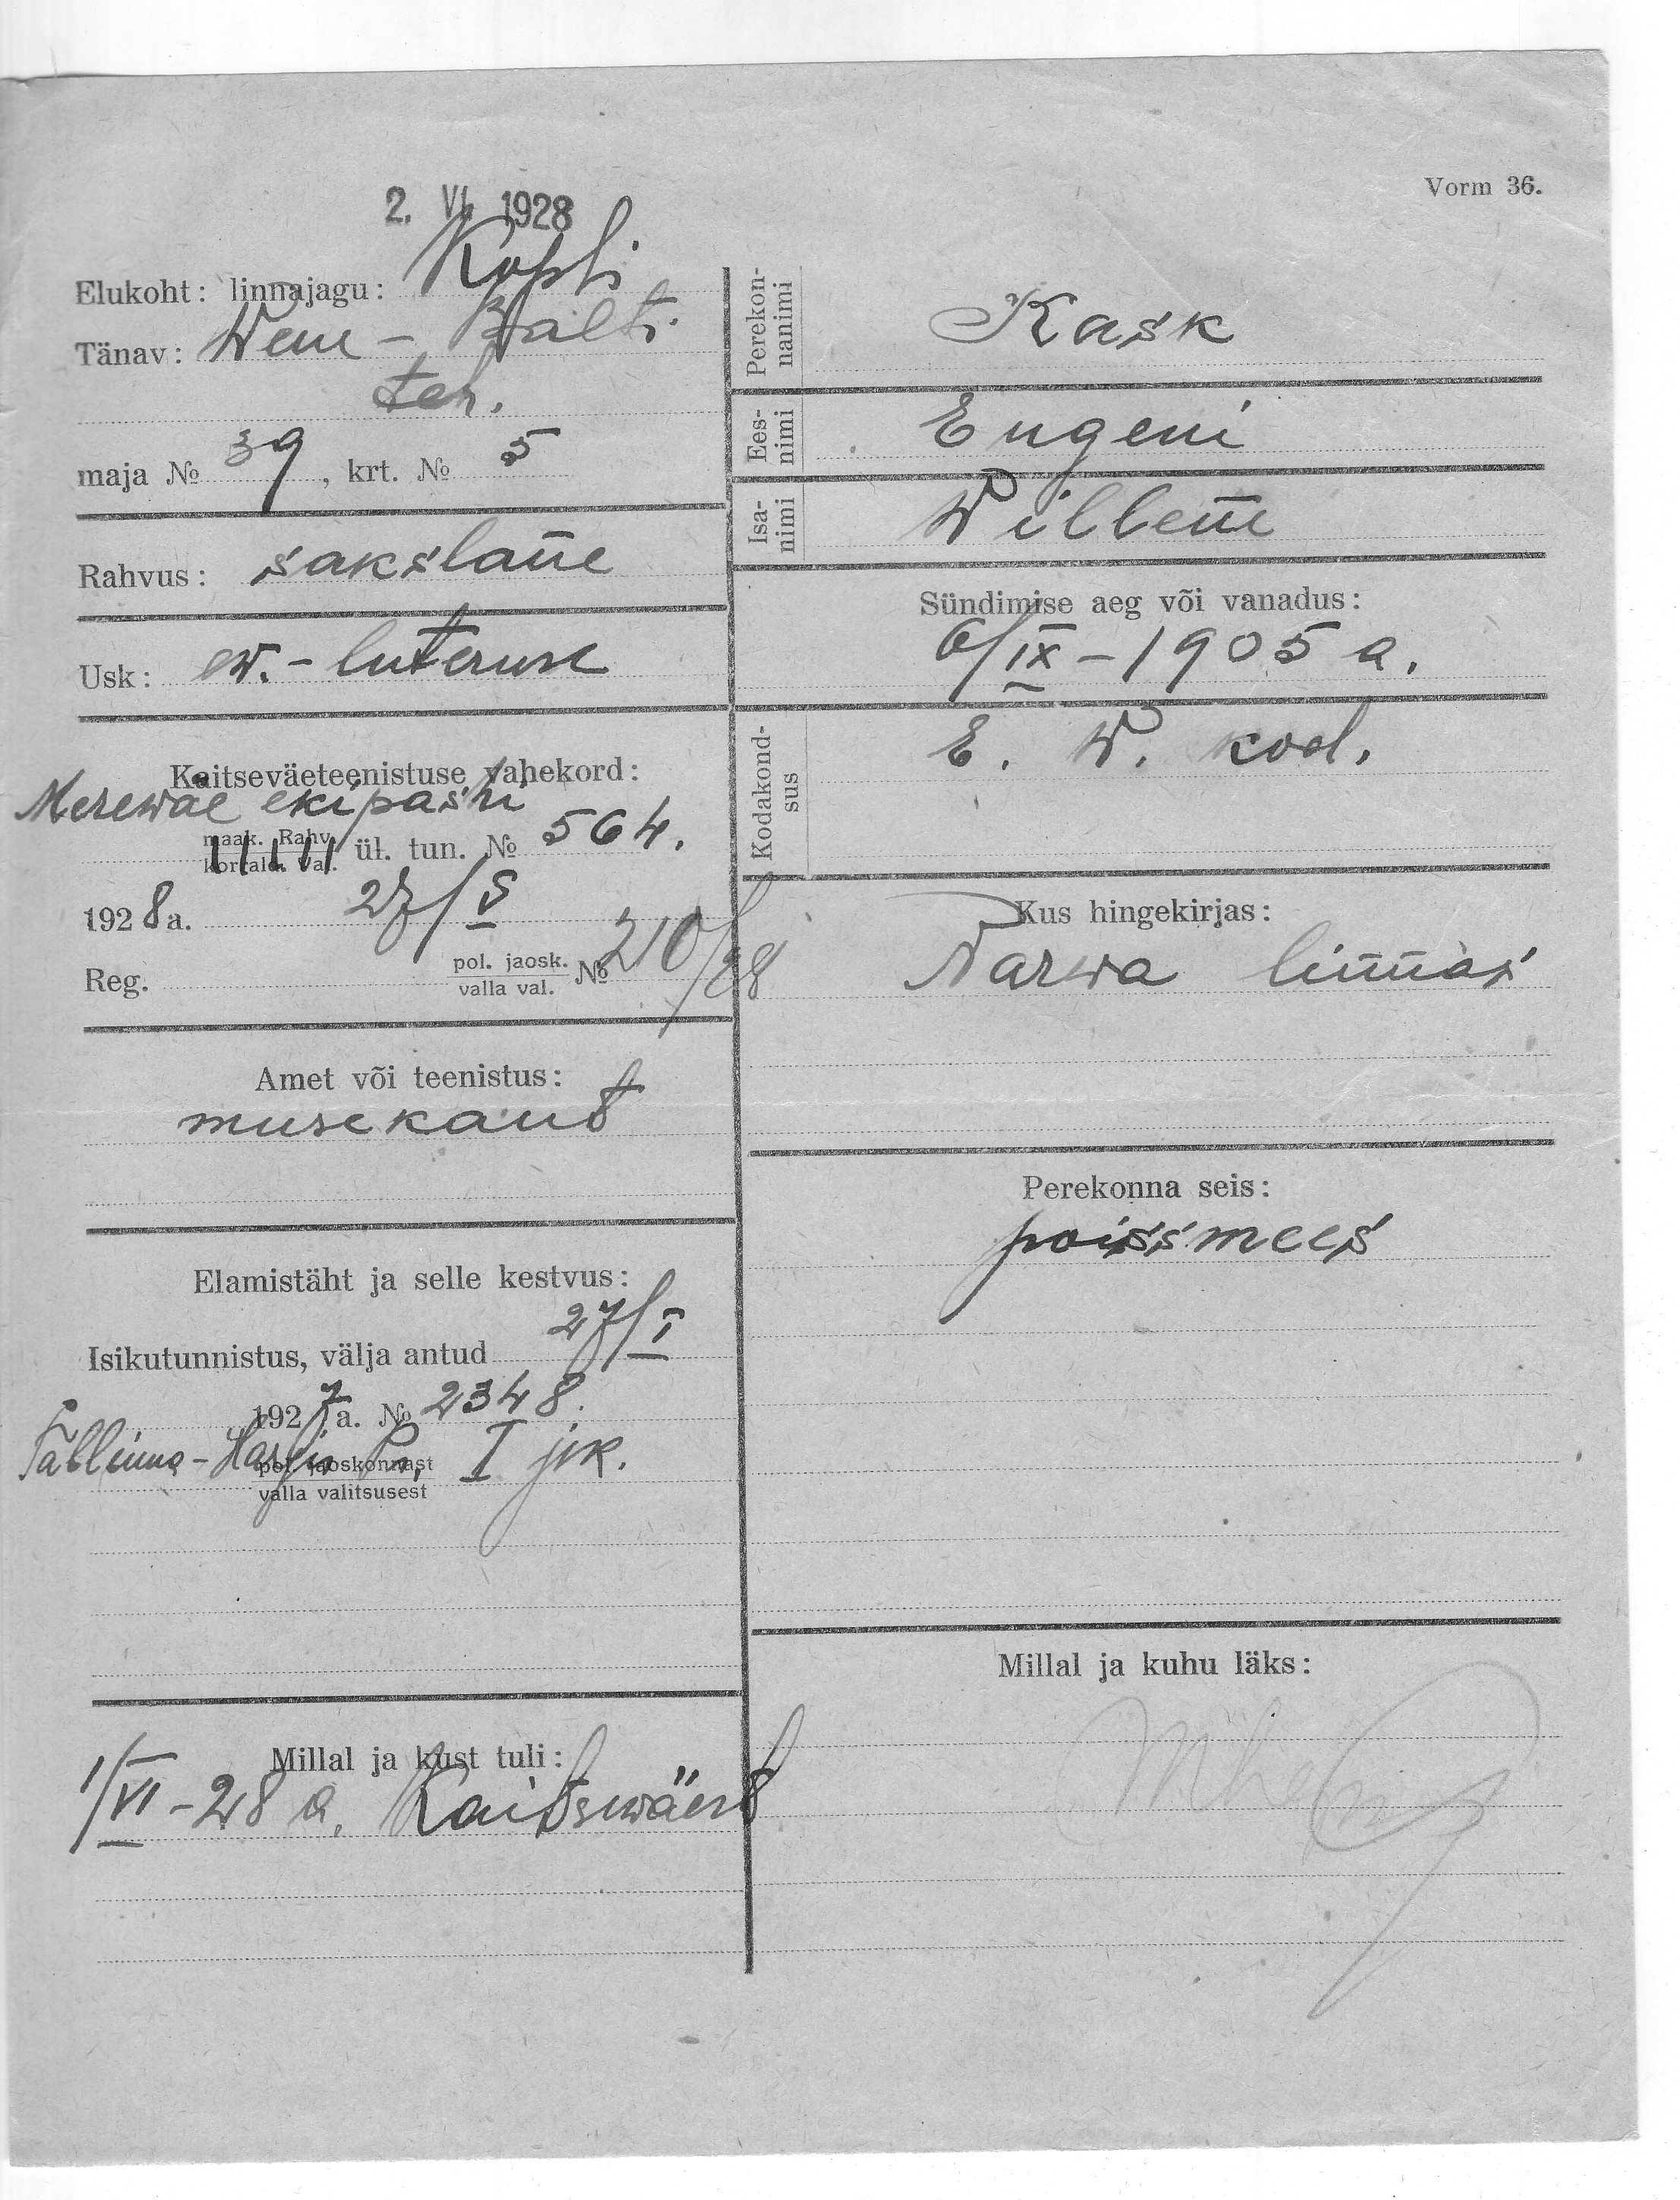 Vorm 36.
2. VI 1928
Elukoht: linnajagu: Kopli
Tänav: Wene - Balti
teh.
maja № 39, krt. № 5
Rahvus: sakslane
Usk: ew.-luteruse
Kaitseväeteenistuse vahekord:
Merewäe ekipashi
maak. Rahv.
korrald. val. ül. tun. № 564.
1928 a. 27/V
Reg. pol. jaosk.
valla val. № 210/28
Amet või teenistus:
musekant
Elamistäht ja selle kestvus:
Isikutunnistus, välja antud 27/I
1927 a. № 2348.
Tallinna-Harju P. I jsk.
pol. jaoskonnast
valla valitsusest
Millal ja kust tuli:
1/VI-28 a. Kaitsewäest
Perekon-
nanimi Kask
Ees-
nimi Eugeni
Isa-
nimi Willem
Sündimise aeg või vanadus:
6/IX-1905 a.
Kodakond-
sus E. W. kod.
Kus hingekirjas:
Narwa linnas
Perekonna seis:
poissmees
Millal ja kuhu läks: